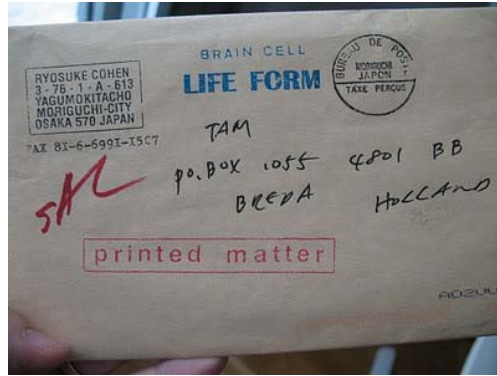 RYOSUKE COHEN
3-76-1-A-613
YAGUMOKITACHO
MORIGUCHI-CITY
OSAKA 570 JAPAN
FAX 81-6-6991-15C7
BRAIN CELL
LIFE FORM
BUREAU DE POSTE
MORIGUCHI
JAPON
TAXE PERÇUE
SAL
TAM
PO.BOX 1055 4801 BB
BREDA HOLLAND
printed matter